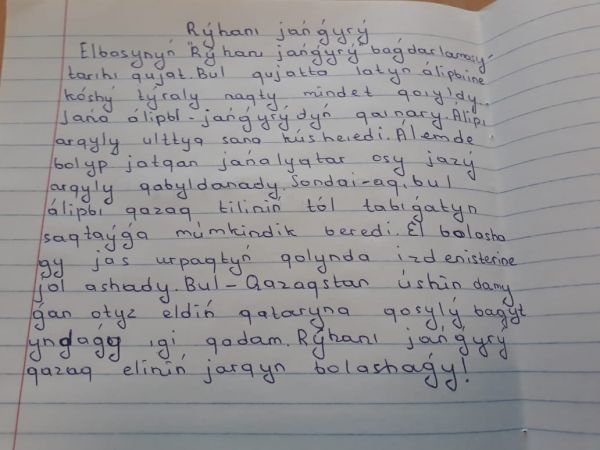 Rýhanı jańǵyrý
Elbasynyń "Rýhanı jańǵyrý" baǵdarlamasy
tarıhı qujat. Bul qujatta latyn álipbiine
kóshý týraly naqty mindet qoıyldy.
Jańa álipbı - jańǵyrýdyń qaınary. Álipı
arqyly ulttyq sana kúsheıedi. Álemde
bolyp jatqan jańalyqtar osy jazý
arqyly qabyldanady. Sondai-aq, bul
álipbı qazaq tiliniń tól tabıǵatyn
saqtaýǵa múmkindik beredi. El bolasha
ǵy jas urpaqtyń qolynda izdenisterine
jol ashady. Bul - Qazaqstan úshin damy
ǵan otyz eldiń qataryna qosylý baǵyt
yndaǵy ıgi qadam. Rýhanı jańǵyrý
qazaq eliniń jarqyn bolashaǵy!